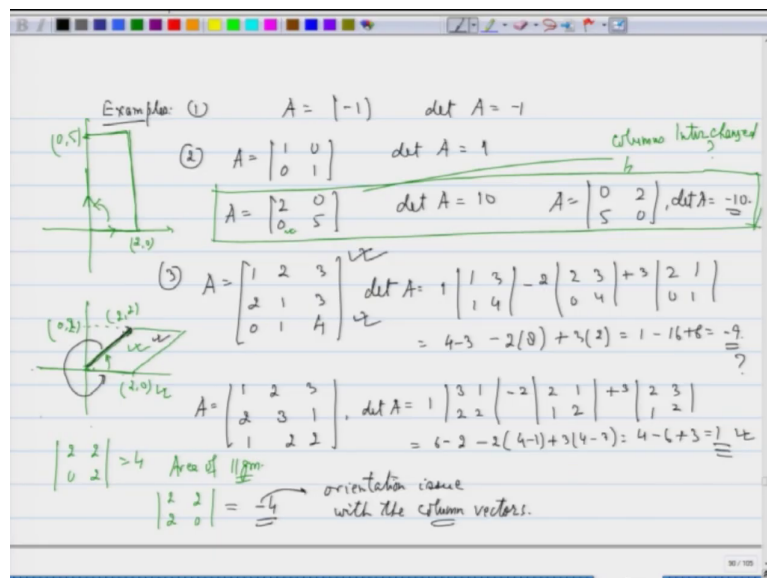 Examples: (1) A = [-1] det A = -1
(0,5)
(2) A = [1 0; 0 1] det A = 1
columns Interchanged
?
A = [2 0; 0 5] det A = 10 A = [0 2; 5 0], det A = -10.
(2,0)
(3) A = [1 2 3; 2 1 3; 0 1 4] det A = 1 |1 3; 1 4| - 2 |2 3; 0 4| + 3 |2 1; 0 1|
= 4-3 - 2(8) + 3(2) = 1 - 16 + 6 = -9
?
(0,2) (2,2)
(2,0)
A = [1 2 3; 2 3 1; 1 2 2], det A = 1 |3 1; 2 2| - 2 |2 1; 1 2| + 3 |2 3; 1 2|
= 6 - 2 - 2(4-1) + 3(4-3) = 4 - 6 + 3 = 1
|2 2; 0 2| = 4 Area of ||gm.
|2 2; 2 0| = -4 → orientation issue
with the column vectors.
90 / 105